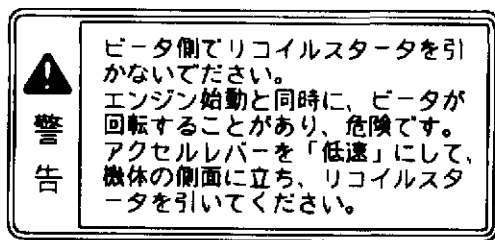 警告
ビータ側でリコイルスタータを引
かないでださい。
エンジン始動と同時に、ビータが
回転することがあり、危険です。
アクセルレバーを「低速」にして、
機体の側面に立ち、リコイルスタ
ータを引いてください。